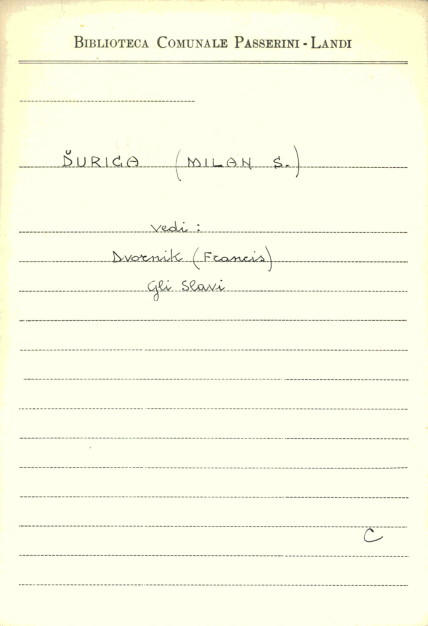 BIBLIOTECA COMUNALE PASSERINI - LANDI
ĎURICA (MILAN S.)
vedi :
Dvornik (Francis)
Gli Slavi
C